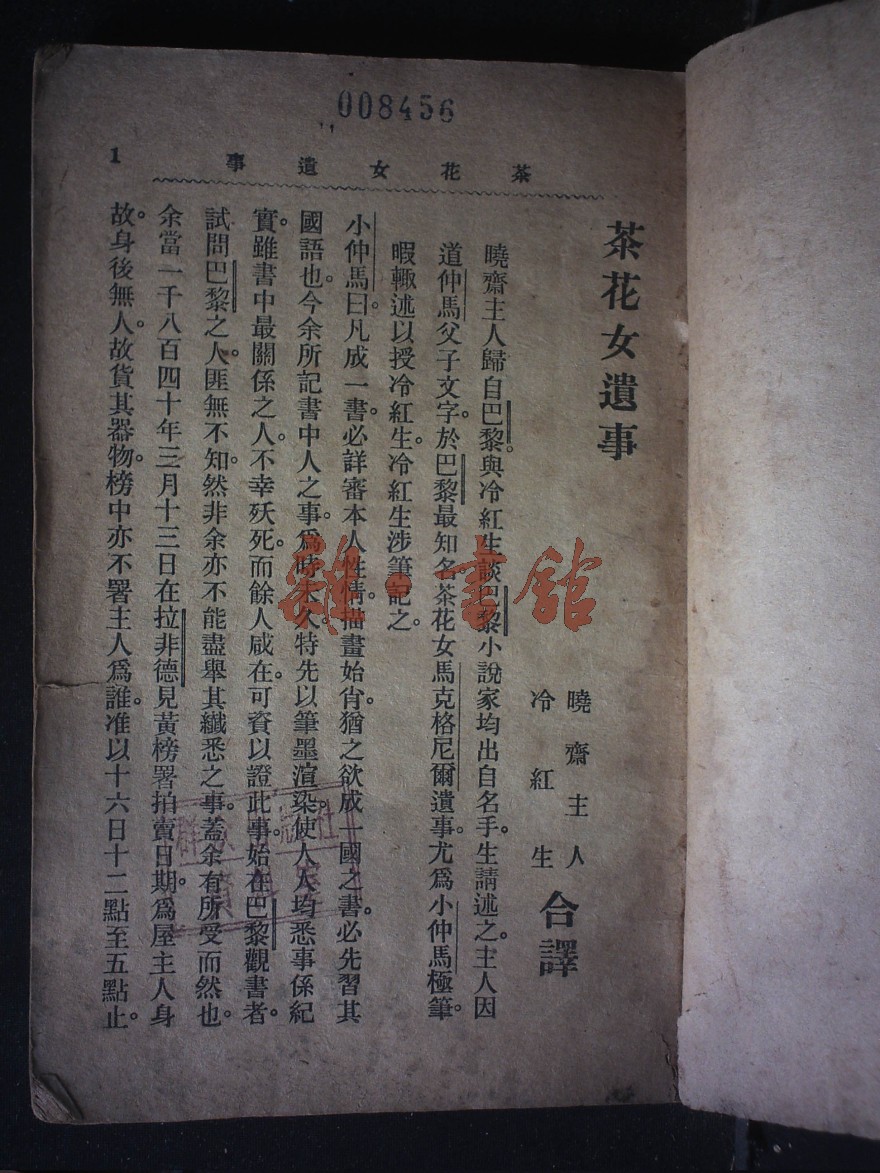 008456
茶花女遺事
1
茶花女遺事
曉齋主人
冷紅生
合譯
曉齋主人歸自巴黎。與冷紅生談巴黎小說家均出自名手。生請述之。主人因
道仲馬父子文字。於巴黎最知名茶花女馬克格尼爾遺事。尤爲小仲馬極筆。
暇輙述以授冷紅生。冷紅生涉筆記之。
小仲馬曰。凡成一書。必詳審本人性情。描畫始肖。猶之欲成一國之書。必先習其
國語也。今余所記書中人之事。爲時未久。特先以筆墨渲染。使人人均悉事係紀
實。雖書中最關係之人。不幸殀死。而餘人咸在。可資以證此事。始在巴黎觀書者。
試問巴黎之人。匪無不知。然非余亦不能盡舉其纖悉之事。蓋余有所受而然也。
余當一千八百四十年三月十三日在拉非德見黃榜署拍賣日期。爲屋主人身
故。身後無人。故貨其器物。榜中亦不署主人爲誰。准以十六日十二點至五點止。
雜·書館